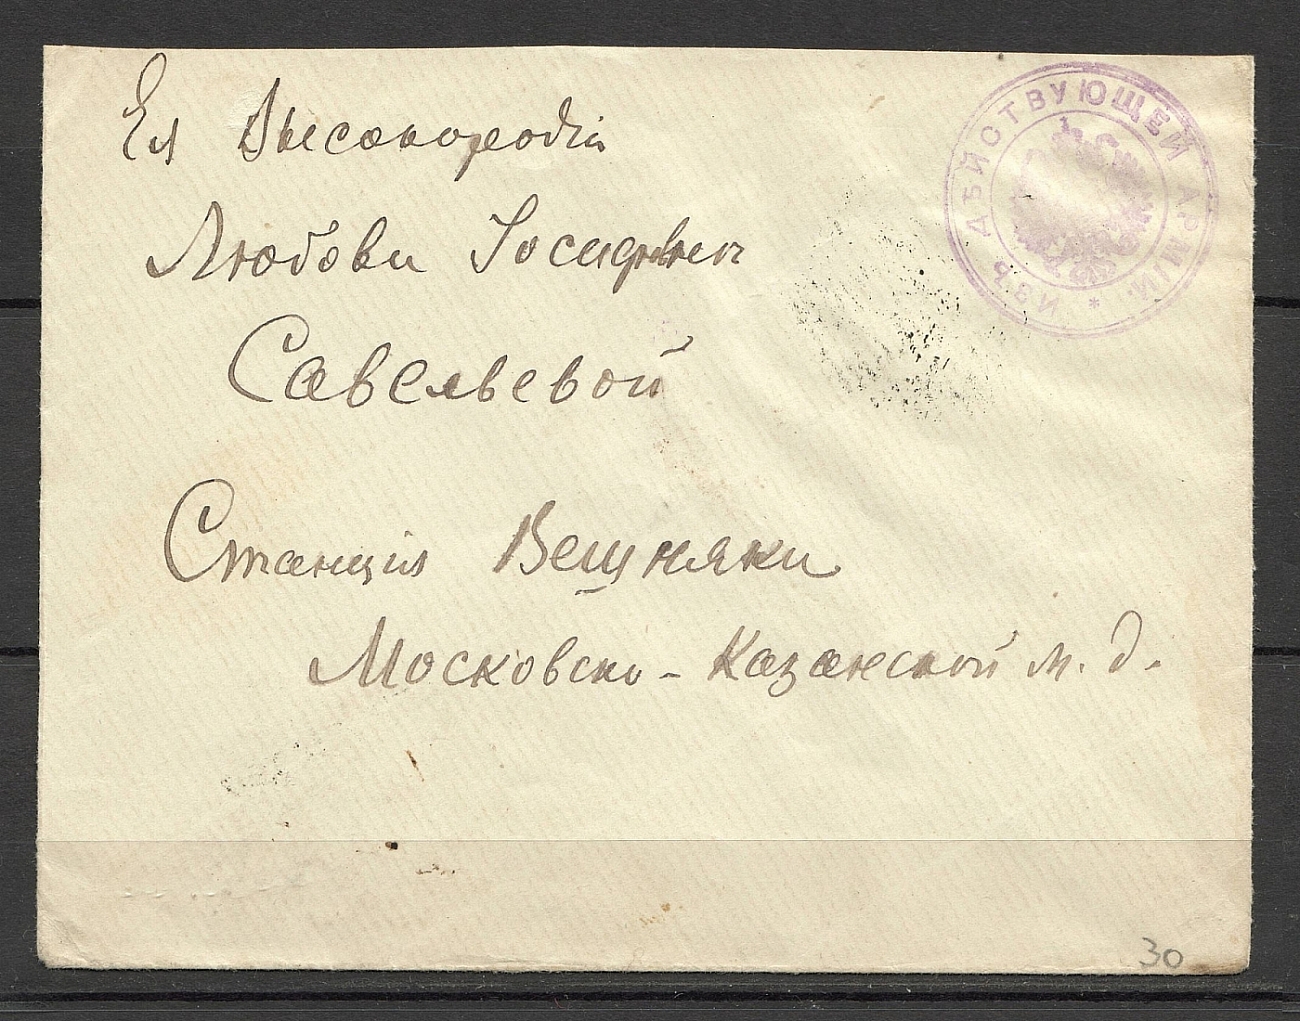 Ея Высокородію
Любови Іосифовне
Савельевой
Станція Вешняки
Московско-Казанской ж. д.
ИЗЪ ДѢЙСТВУЮЩЕЙ АРМІИ *
30